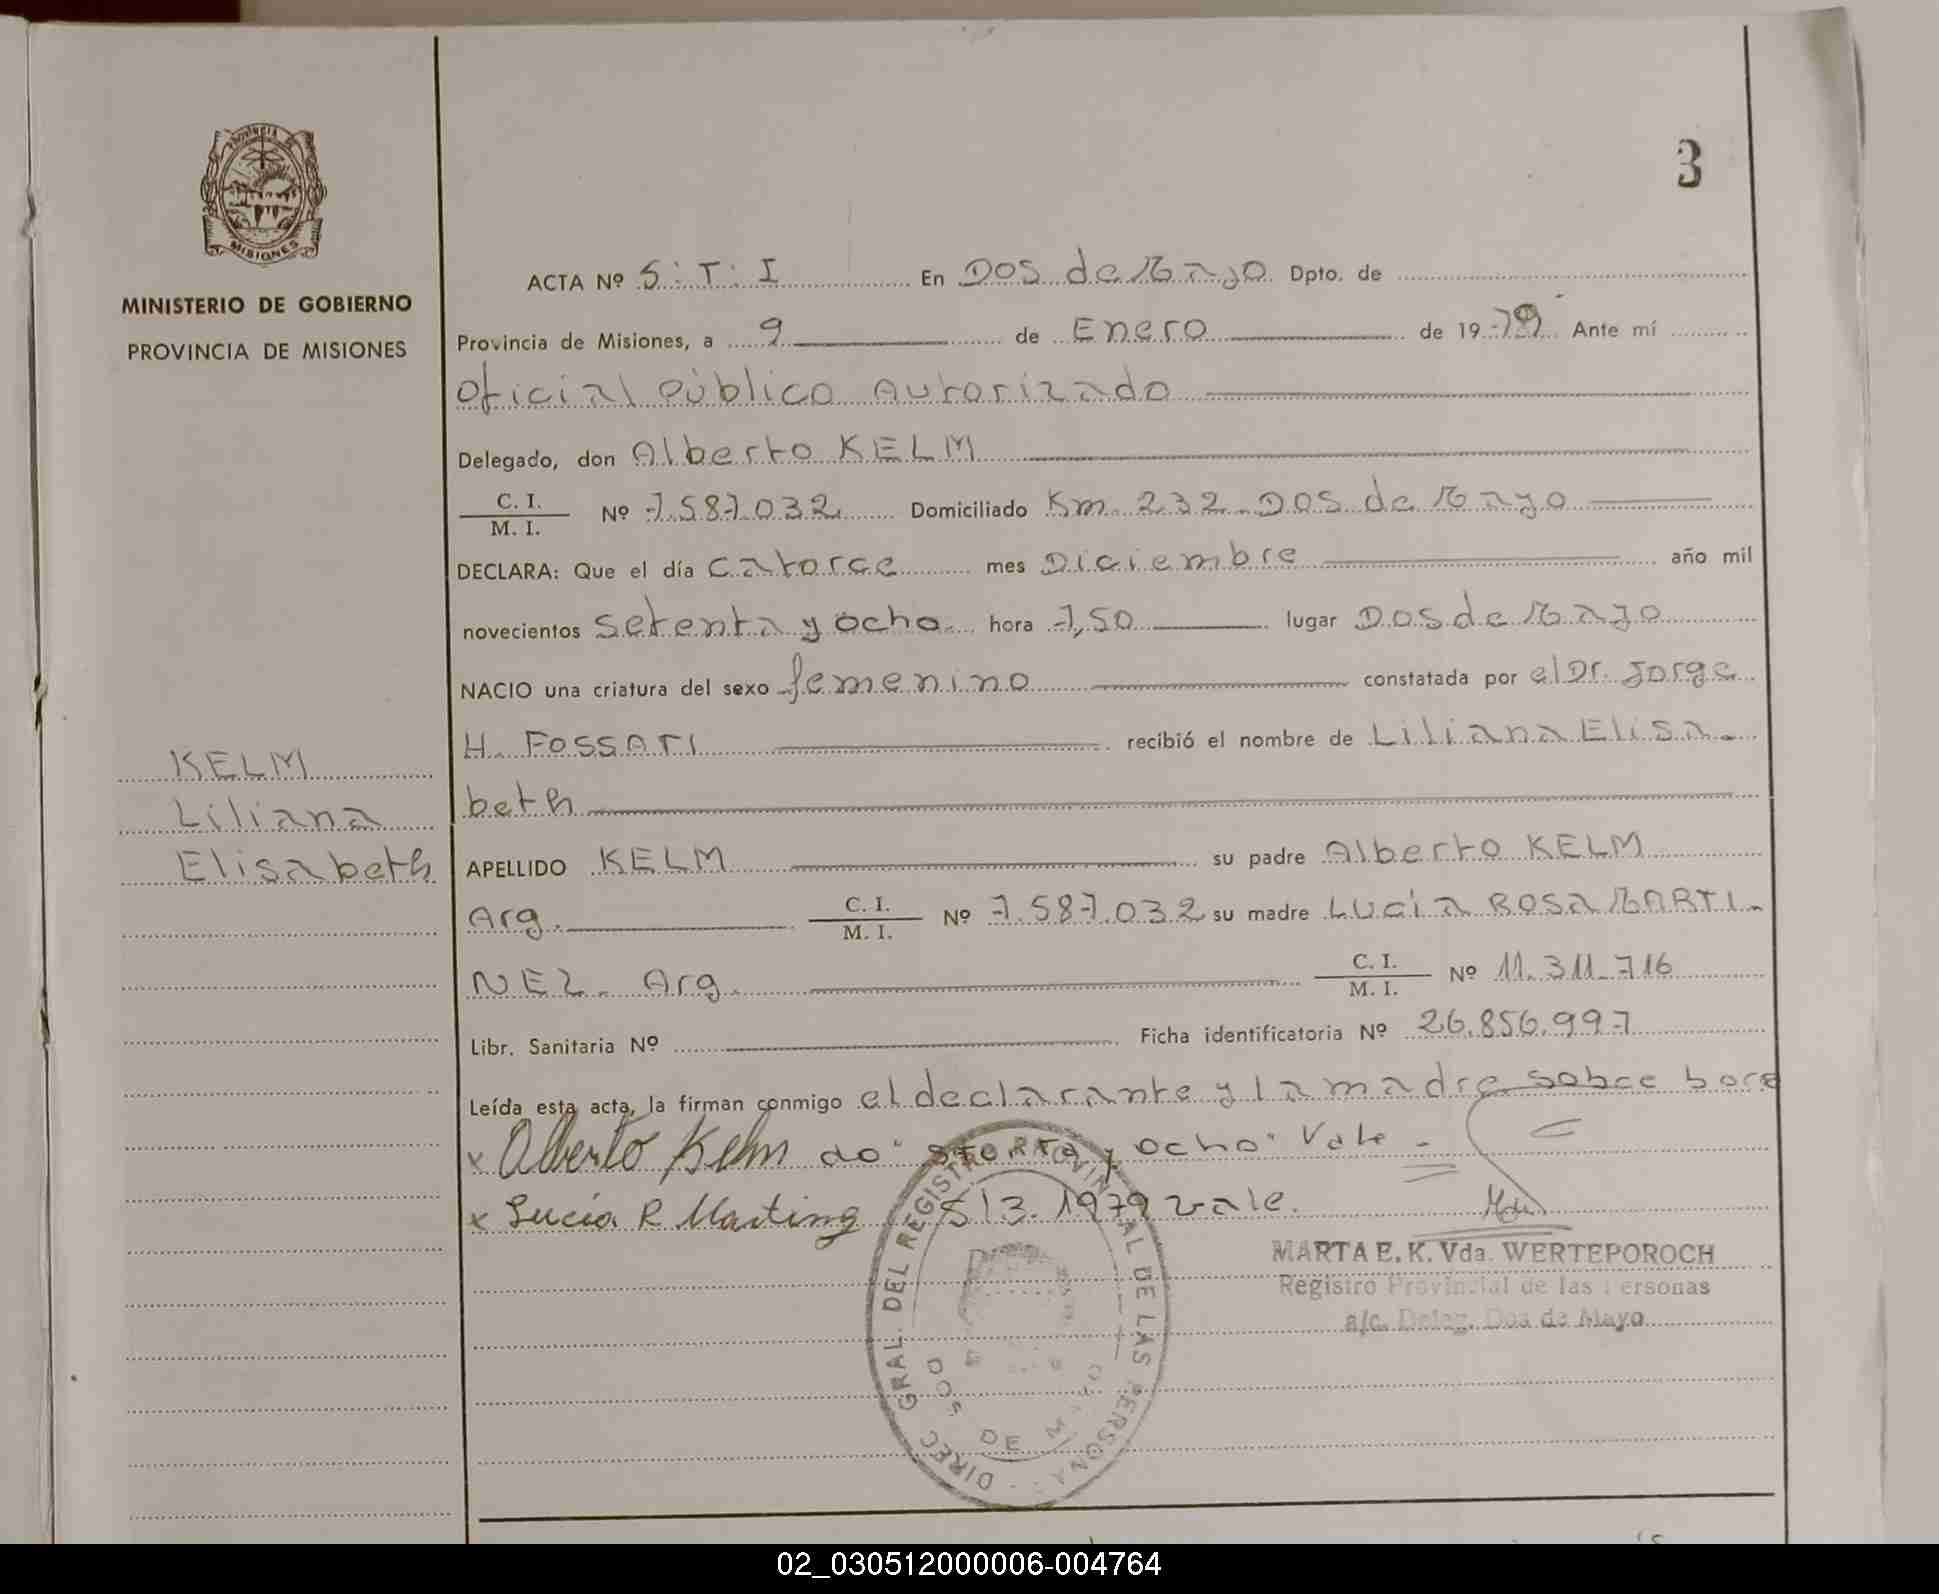 3
PROVINCIA DE
MISIONES
MINISTERIO DE GOBIERNO
PROVINCIA DE MISIONES
KELM
Liliana
Elisabeth
ACTA Nº S.T.I En Dos de Mayo Dpto. de
Provincia de Misiones, a 9 de Enero de 19 79 Ante mí
Oficial Público Autorizado
Delegado, don Alberto KELM
C. I. / M. I. Nº 7.587.032 Domiciliado Km. 232 - Dos de Mayo
DECLARA: Que el día catorce mes Diciembre año mil
novecientos setenta y ocho hora 7,50 lugar Dos de Mayo
NACIO una criatura del sexo femenino constatada por el Dr. Jorge
H. FOSSATI recibió el nombre de Liliana Elisa-
beth
APELLIDO KELM su padre Alberto KELM
Arg. C. I. / M. I. Nº 7.587.032 su madre LUCIA ROSA MARTI-
NEZ - Arg. C. I. / M. I. Nº 11.311.716
Libr. Sanitaria Nº Ficha identificatoria Nº 26.856.997
Leída esta acta, la firman conmigo el declarante y la madre sobre borra
x Alberto Kelm do " y ocho" Vale -
x Lucía R Martinez S/3. 1979 vale.
MARTA E. K. Vda. WERTEPOROCH
Registro Provincial de las Personas
a/c. Deleg. Dos de Mayo
DIREC. GRAL. DEL REGISTRO PROVINCIAL DE LAS PERSONAS
DOS DE MAYO
02_030512000006-004764